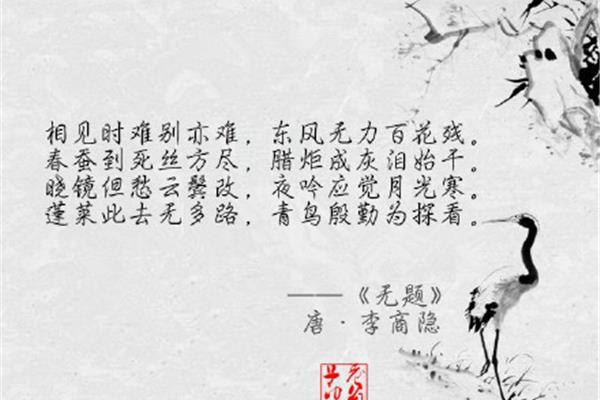 相见时难别亦难，东风无力百花残。
春蚕到死丝方尽，腊炬成灰泪始干。
晓镜但愁云鬓改，夜吟应觉月光寒。
蓬莱此去无多路，青鸟殷勤为探看。
——《无题》
唐·李商隐